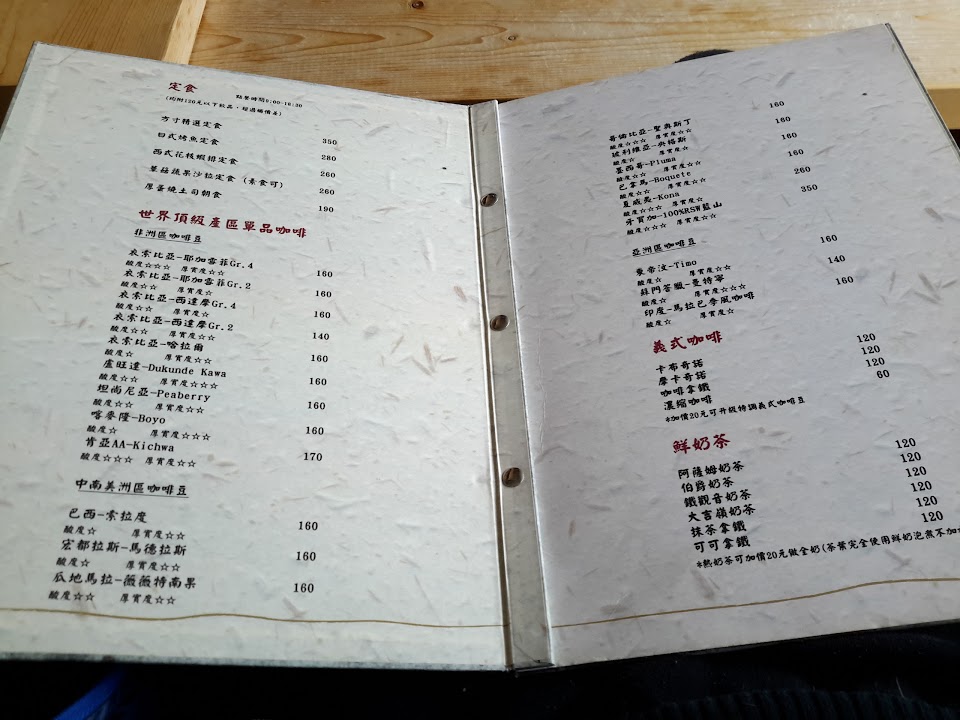 定食 點餐時間8:00-16:30
(均附120元以下飲品，超過補價差)
方寸精選定食 350
日式烤魚定食 280
西式花枝蝦排定食 260
蕈菇蔬果沙拉定食 (素食可) 260
厚蛋燒土司朝食 190
世界頂級產區單品咖啡
非洲區咖啡豆
衣索比亞-耶加雪菲Gr.4 160
酸度☆☆☆ 厚實度☆☆
衣索比亞-耶加雪菲Gr.2 160
酸度☆☆ 厚實度☆
衣索比亞-西達摩Gr.4 160
酸度☆☆ 厚實度☆
衣索比亞-西達摩Gr.2 140
酸度☆☆ 厚實度☆
衣索比亞-哈拉爾 160
酸度☆ 厚實度☆☆
盧旺達-Dukunde Kawa 160
酸度☆☆ 厚實度☆☆☆
坦尚尼亞-Peaberry 160
酸度☆☆ 厚實度☆☆
喀麥隆-Boyo 160
酸度☆ 厚實度☆☆☆
肯亞AA-Kichwa 170
酸度☆☆☆ 厚實度☆☆
中南美洲區咖啡豆
巴西-索拉度 160
酸度☆ 厚實度☆☆
宏都拉斯-馬德拉斯 160
酸度☆ 厚實度☆☆
瓜地馬拉-薇薇特南果 160
酸度☆☆ 厚實度☆☆
哥倫比亞-聖奧斯丁 160
酸度☆☆☆ 厚實度☆☆
玻利維亞-央格斯 160
酸度☆ 厚實度☆
墨西哥-Pluma 160
酸度☆☆ 厚實度☆☆
巴拿馬-Boquete 160
酸度☆☆ 厚實度☆☆
夏威夷-Kona 260
酸度☆☆☆ 厚實度☆☆
牙買加-100%RSW藍山 350
酸度☆☆☆ 厚實度☆☆
亞洲區咖啡豆
東帝汶-Timo 160
酸度☆ 厚實度☆☆
蘇門答臘-曼特寧 140
酸度☆ 厚實度☆☆☆
印度-馬拉巴季風咖啡 160
酸度☆ 厚實度☆
義式咖啡
卡布奇諾 120
摩卡奇諾 120
咖啡拿鐵 120
濃縮咖啡 60
*加價20元可升級特調義式咖啡豆
鮮奶茶
阿薩姆奶茶 120
伯爵奶茶 120
鐵觀音奶茶 120
大吉嶺奶茶 120
抹茶拿鐵 120
可可拿鐵 120
*熱奶茶可加價20元做全奶(茶葉完全使用鮮奶泡煮不加